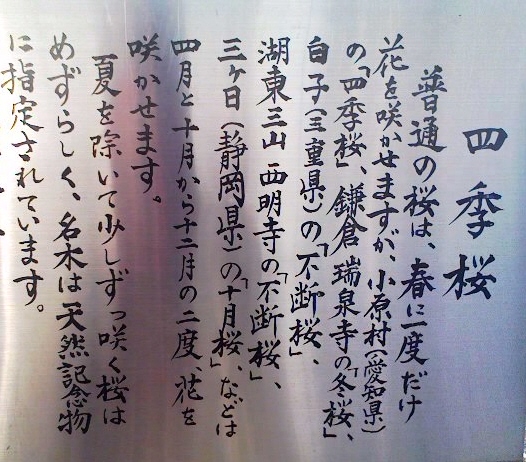 四季桜
普通の桜は、春に一度だけ
花を咲かせますが、小原村(愛知県)
の「四季桜」、鎌倉瑞泉寺の「冬桜」、
白子(三重県)の「不断桜」、
湖東三山西明寺の「不断桜」、
三ヶ日(静岡県)の「十月桜」、などは
四月と十月から十二月の二度、花を
咲かせます。
夏を除いて少しずつ咲く桜は
めずらしく、名木は天然記念物
に指定されています。